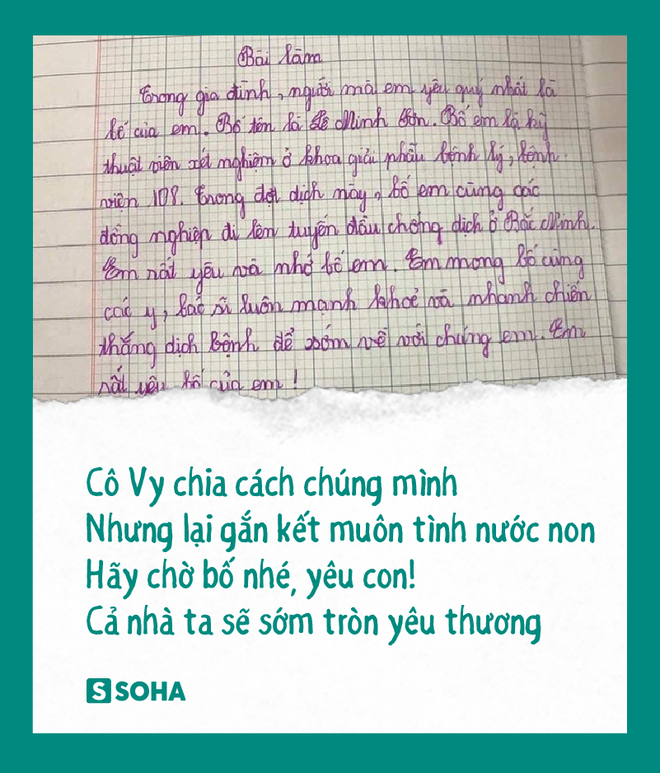 Bài làm
Trong gia đình, người mà em yêu quý nhất là
bố của em. Bố tên là Lê Minh Sơn. Bố em là kỹ
thuật viên xét nghiệm ở khoa giải phẫu bệnh lý, bệnh
viện 108. Trong đợt dịch này, bố em cùng các
đồng nghiệp đi lên tuyến đầu chống dịch ở Bắc Ninh.
Em rất yêu và nhớ bố em. Em mong bố cùng
các y, bác sĩ luôn mạnh khoẻ và nhanh chiến
thắng dịch bệnh để sớm về với chúng em. Em
rất yêu bố của em!
Cô Vy chia cách chúng mình
Nhưng lại gắn kết muôn tình nước non
Hãy chờ bố nhé, yêu con!
Cả nhà ta sẽ sớm tròn yêu thương
S SOHA